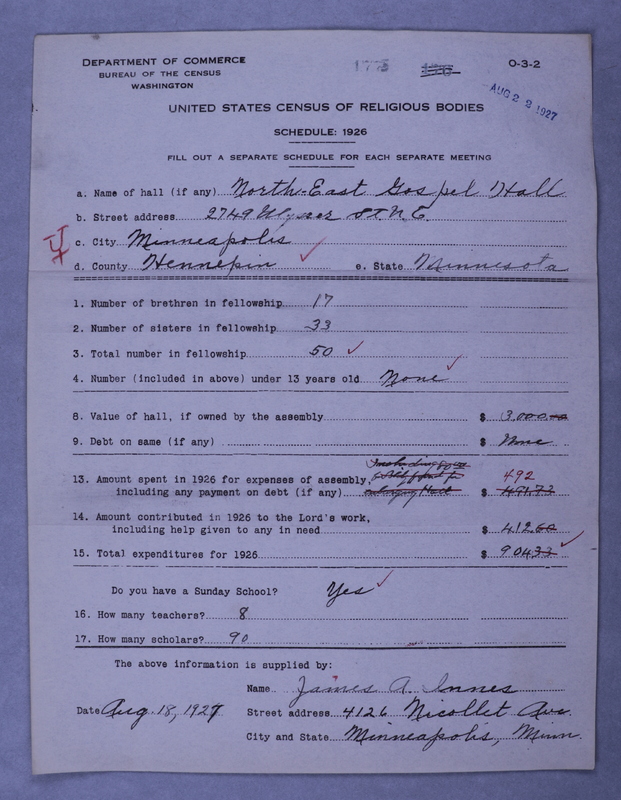 DEPARTMENT OF COMMERCE
BUREAU OF THE CENSUS
WASHINGTON
1775
O-3-2
AUG 22 1927
UNITED STATES CENSUS OF RELIGIOUS BODIES
SCHEDULE: 1926
FILL OUT A SEPARATE SCHEDULE FOR EACH SEPARATE MEETING
a. Name of hall (if any) North-East Gospel Hall
b. Street address 2749 St. N.E.
c. City Minneapolis
d. County Hennepin e. State Minnesota
1. Number of brethren in fellowship 17
2. Number of sisters in fellowship 33
3. Total number in fellowship 50
4. Number (included in above) under 13 years old None
8. Value of hall, if owned by the assembly $ 3,000.00
9. Debt on same (if any) $ None
13. Amount spent in 1926 for expenses of assembly, 492
including any payment on debt (if any) $ 491.73
14. Amount contributed in 1926 to the Lord's work,
including help given to any in need $ 412.60
15. Total expenditures for 1926 $ 904.33
Do you have a Sunday School? Yes
16. How many teachers? 8
17. How many scholars? 90
The above information is supplied by:
Name James A. Innes
Date Aug. 18, 1927 Street address 4126 Nicollet Ave.
City and State Minneapolis, Minn.